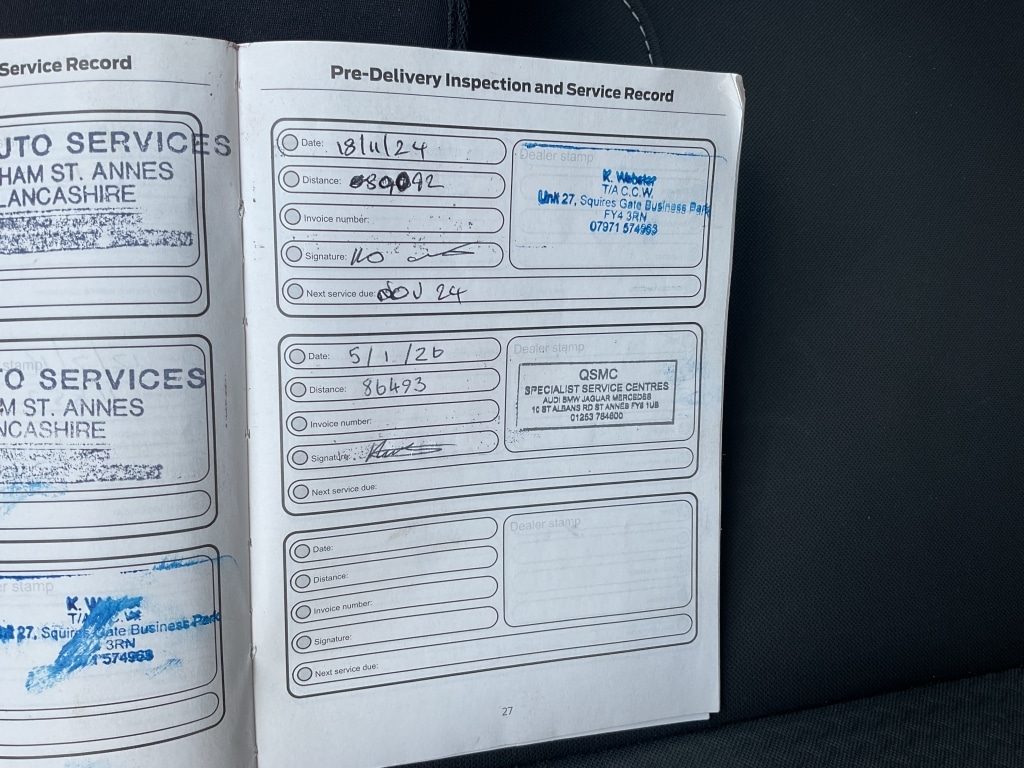 Service Record
UTO SERVICES
HAM ST. ANNES
LANCASHIRE
O SERVICES
M ST. ANNES
NCASHIRE
er stamp
K.
27, Squires Gate Business Park
3RN
574963
Pre-Delivery Inspection and Service Record
Date: 18/11/24
Distance:
Invoice number:
Signature:
Next service due: Nov 24
Dealer stamp
K. Webster
T/A C.C.W.
Unit 27, Squires Gate Business Park
FY4 3RN
07971 574963
Date: 5/1/26
Distance: 86493
Invoice number:
Signature:
Next service due:
Dealer stamp
QSMC
SPECIALIST SERVICE CENTRES
AUDI BMW JAGUAR MERCEDES
10 ST ALBANS RD ST ANNES FY8 1UB
01253 784600
Date:
Distance:
Invoice number:
Signature:
Next service due:
Dealer stamp
27